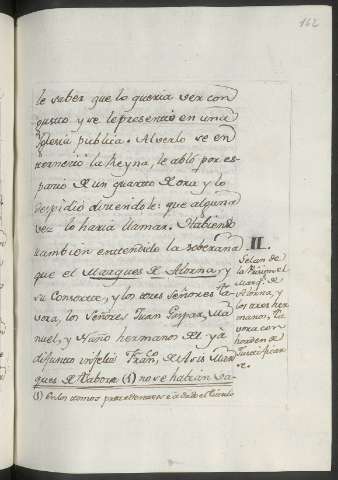 162
le saber que lo queria ver con
gusto y se le presentó en una
Iglesia publica. Al verlo se en
terneció la Reyna, le abló por es-
pacio de un quarto de ora y lo
despidió diciendole: que alguna
vez lo haria llamar. Habiendo
tambien entendido la soberana
que el Marques de Alorna, y
su Consorte, y los tres Señores Ta
vora, los Señores Juan Gaspar, Ma
nuel, y Nuño hermanos del ya
difunto infeliz Fran.co de Asis Mar
ques de Tabora (1) no se habian sa-
II.
Salan de
la Prision el
Marq.s de
Alorna, y
los tres her
manos, Ta
vora con
horden de
Justificar
se.
(1) En los tomos